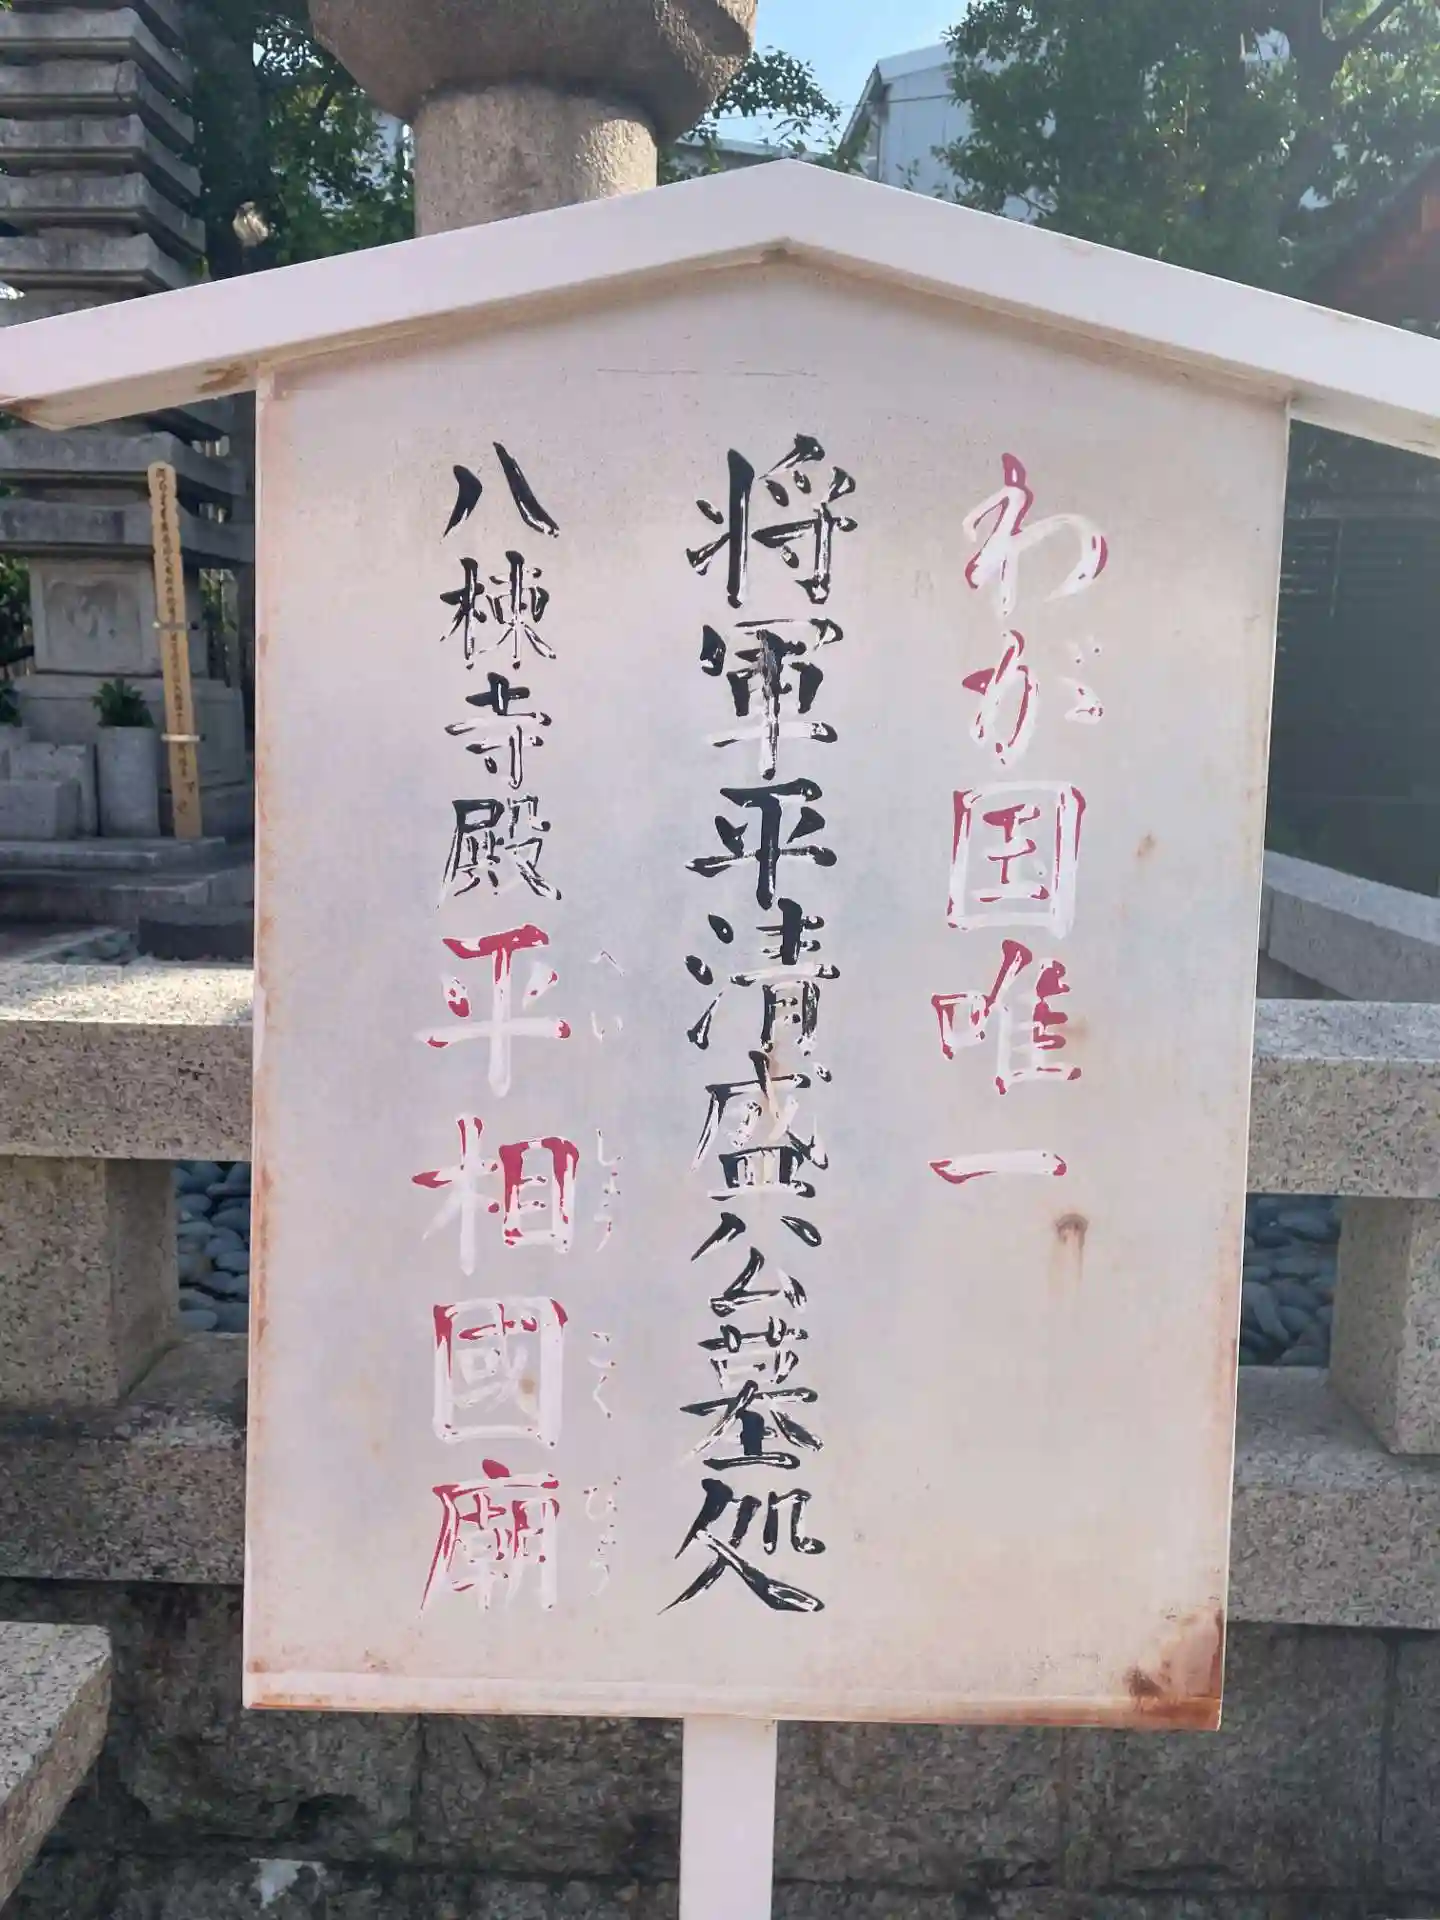 わが国唯一
将軍平清盛公墓処
八棟寺殿平相國廟
へいしょうこくびょう